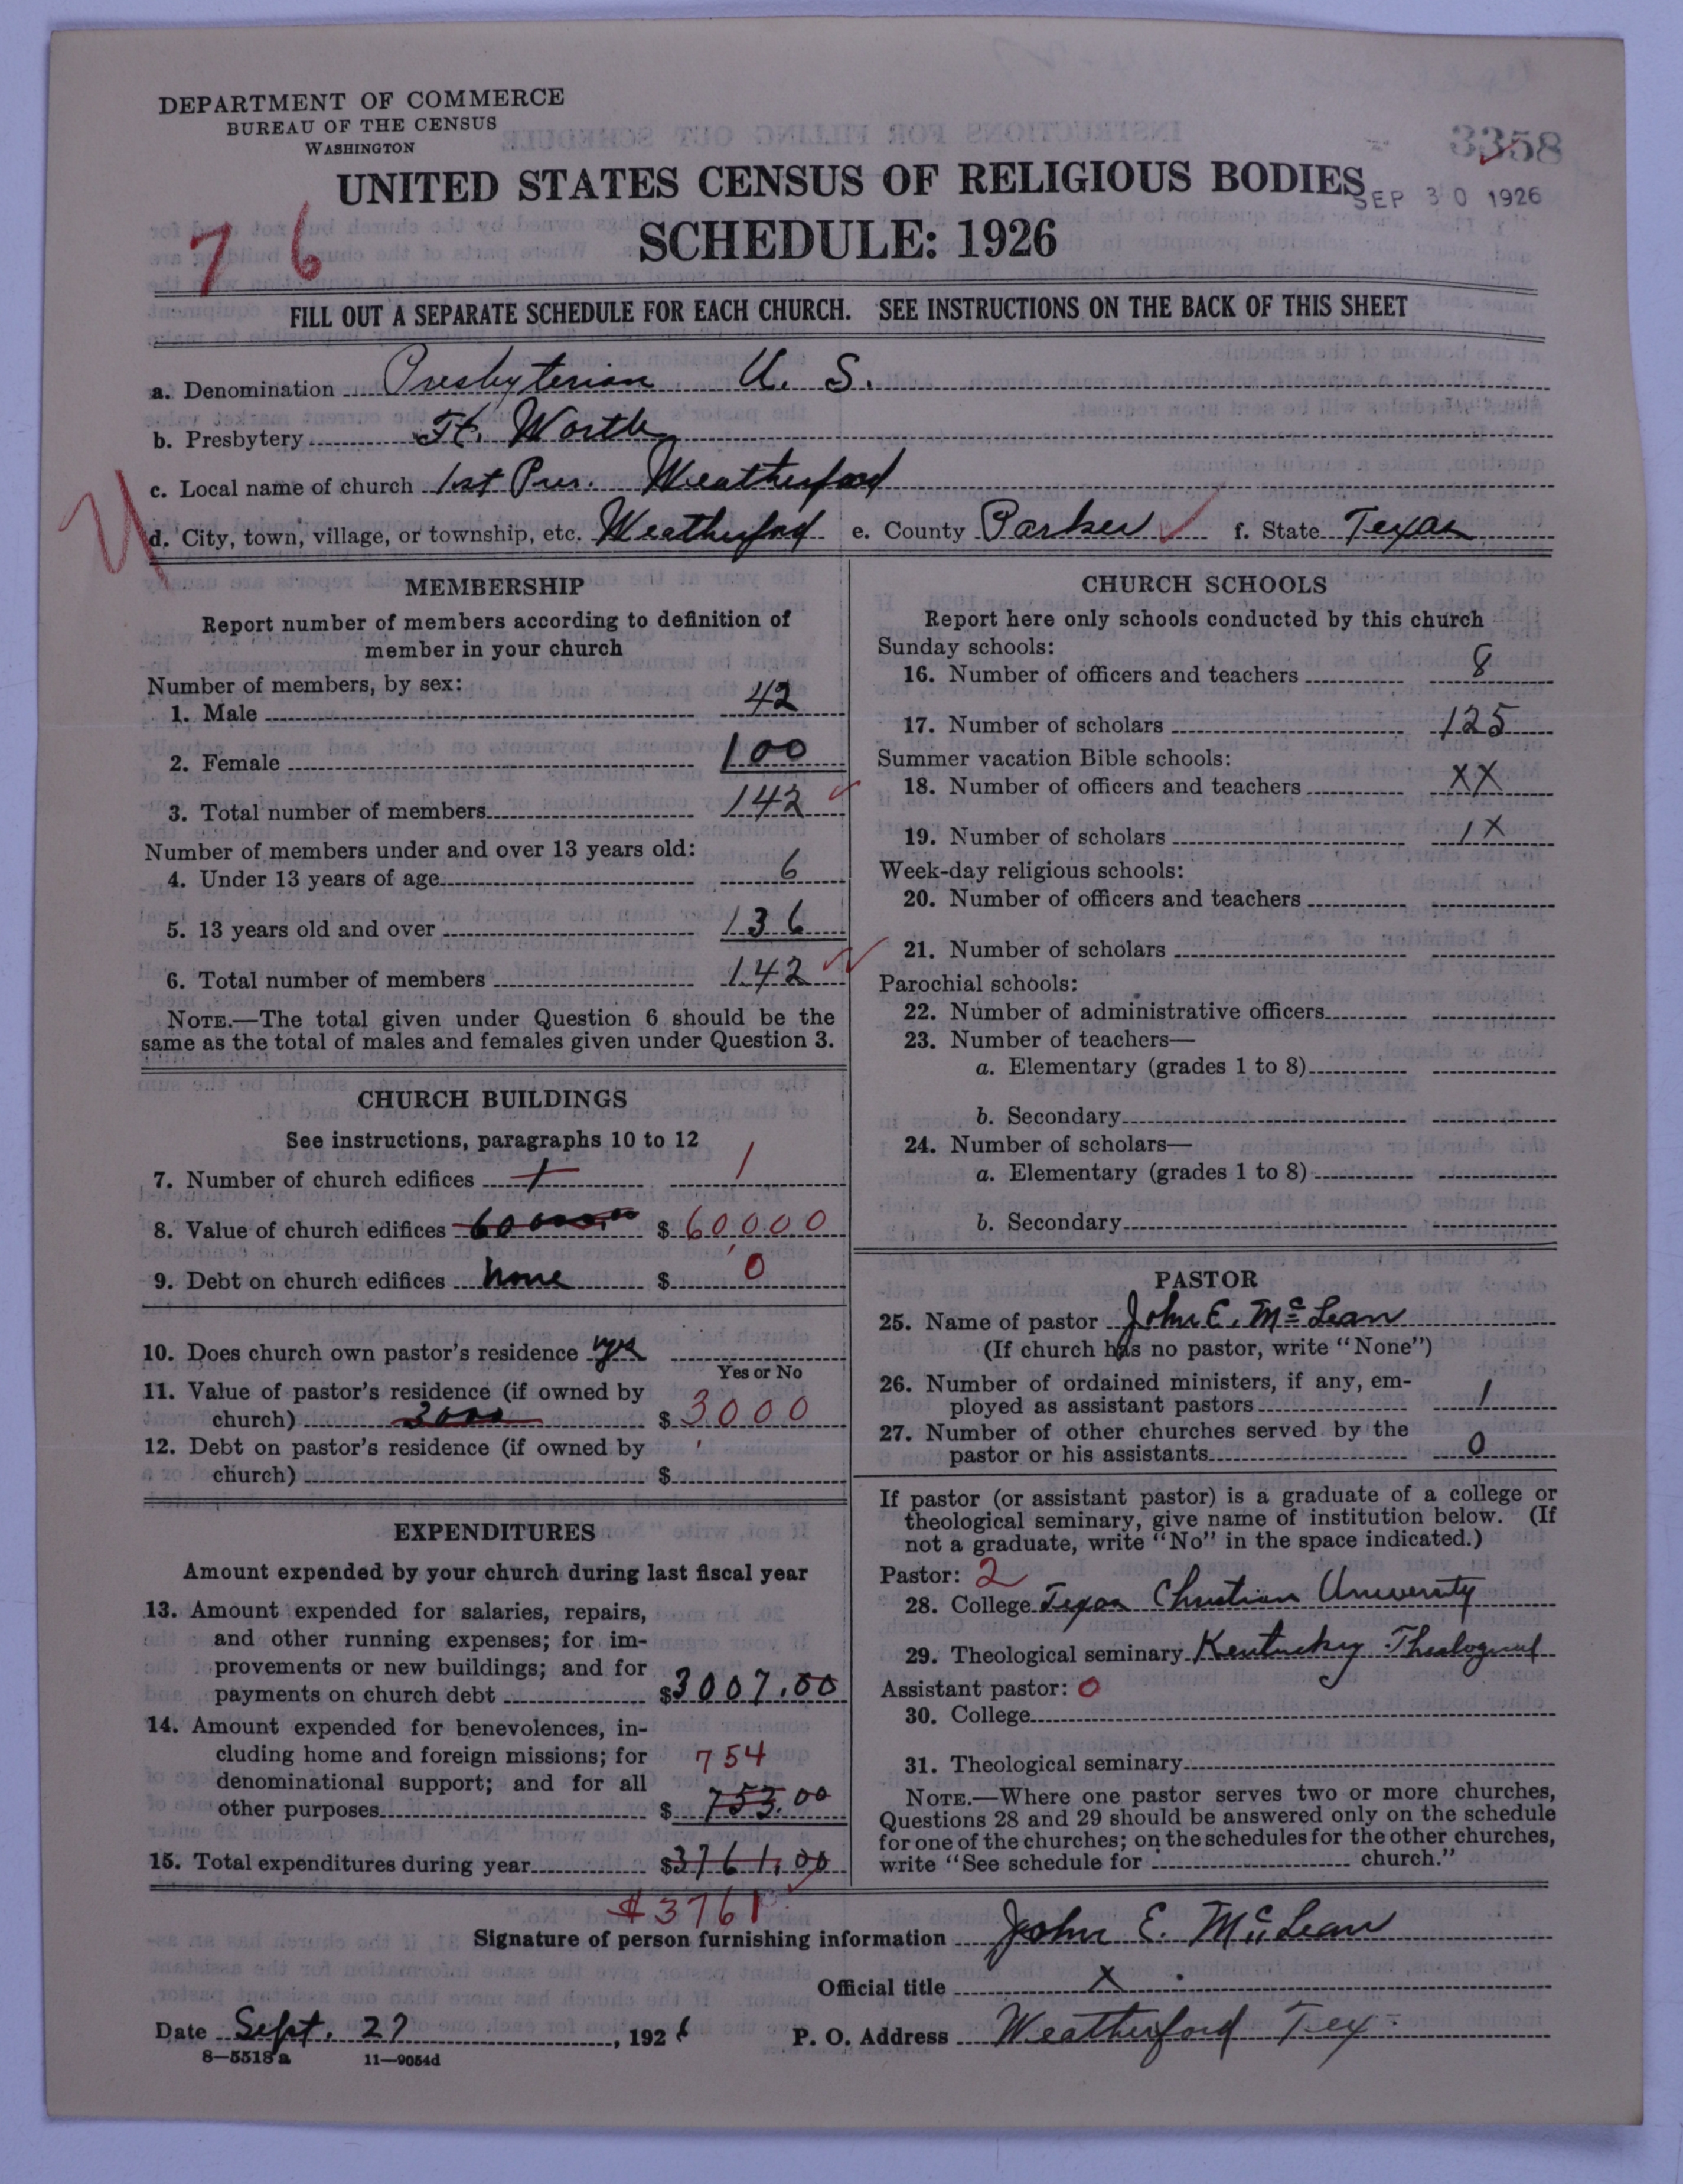 DEPARTMENT OF COMMERCE
BUREAU OF THE CENSUS
WASHINGTON
3358
UNITED STATES CENSUS OF RELIGIOUS BODIES
SEP 30 1926
SCHEDULE: 1926
76
FILL OUT A SEPARATE SCHEDULE FOR EACH CHURCH. SEE INSTRUCTIONS ON THE BACK OF THIS SHEET
a. Denomination Presbyterian U. S.
b. Presbytery Ft. Worth
c. Local name of church 1st Pres. Weatherford
d. City, town, village, or township, etc. Weatherford e. County Parker f. State Texas
MEMBERSHIP
Report number of members according to definition of
member in your church
Number of members, by sex:
1. Male 42
2. Female 100
3. Total number of members 142
Number of members under and over 13 years old:
4. Under 13 years of age 6
5. 13 years old and over 136
6. Total number of members 142
NOTE.—The total given under Question 6 should be the
same as the total of males and females given under Question 3.
CHURCH BUILDINGS
See instructions, paragraphs 10 to 12
7. Number of church edifices 1 1
8. Value of church edifices $ 60,000
9. Debt on church edifices none $ 0
10. Does church own pastor's residence yes
Yes or No
11. Value of pastor's residence (if owned by
church) 3000 $ 3,000
12. Debt on pastor's residence (if owned by
church) $
EXPENDITURES
Amount expended by your church during last fiscal year
13. Amount expended for salaries, repairs,
and other running expenses; for im-
provements or new buildings; and for
payments on church debt $3007.00
14. Amount expended for benevolences, in-
cluding home and foreign missions; for 754
denominational support; and for all
other purposes $ 753.00
15. Total expenditures during year $3761.00
$3761
CHURCH SCHOOLS
Report here only schools conducted by this church
Sunday schools:
16. Number of officers and teachers 8
17. Number of scholars 125
Summer vacation Bible schools:
18. Number of officers and teachers XX
19. Number of scholars 1X
Week-day religious schools:
20. Number of officers and teachers
21. Number of scholars
Parochial schools:
22. Number of administrative officers
23. Number of teachers—
a. Elementary (grades 1 to 8)
b. Secondary
24. Number of scholars—
a. Elementary (grades 1 to 8)
b. Secondary
PASTOR
25. Name of pastor John E. McLean
(If church has no pastor, write "None")
26. Number of ordained ministers, if any, em-
ployed as assistant pastors 1
27. Number of other churches served by the
pastor or his assistants 0
If pastor (or assistant pastor) is a graduate of a college or
theological seminary, give name of institution below. (If
not a graduate, write "No" in the space indicated.)
Pastor: 2
28. College Texas Christian University
29. Theological seminary Kentucky Theological
Assistant pastor: 0
30. College
31. Theological seminary
NOTE.—Where one pastor serves two or more churches,
Questions 28 and 29 should be answered only on the schedule
for one of the churches; on the schedules for the other churches,
write "See schedule for church."
Signature of person furnishing information John E. McLean
Official title X
Date Sept. 27, 1926 P. O. Address Weatherford Tex.
8—5518a 11—9054d